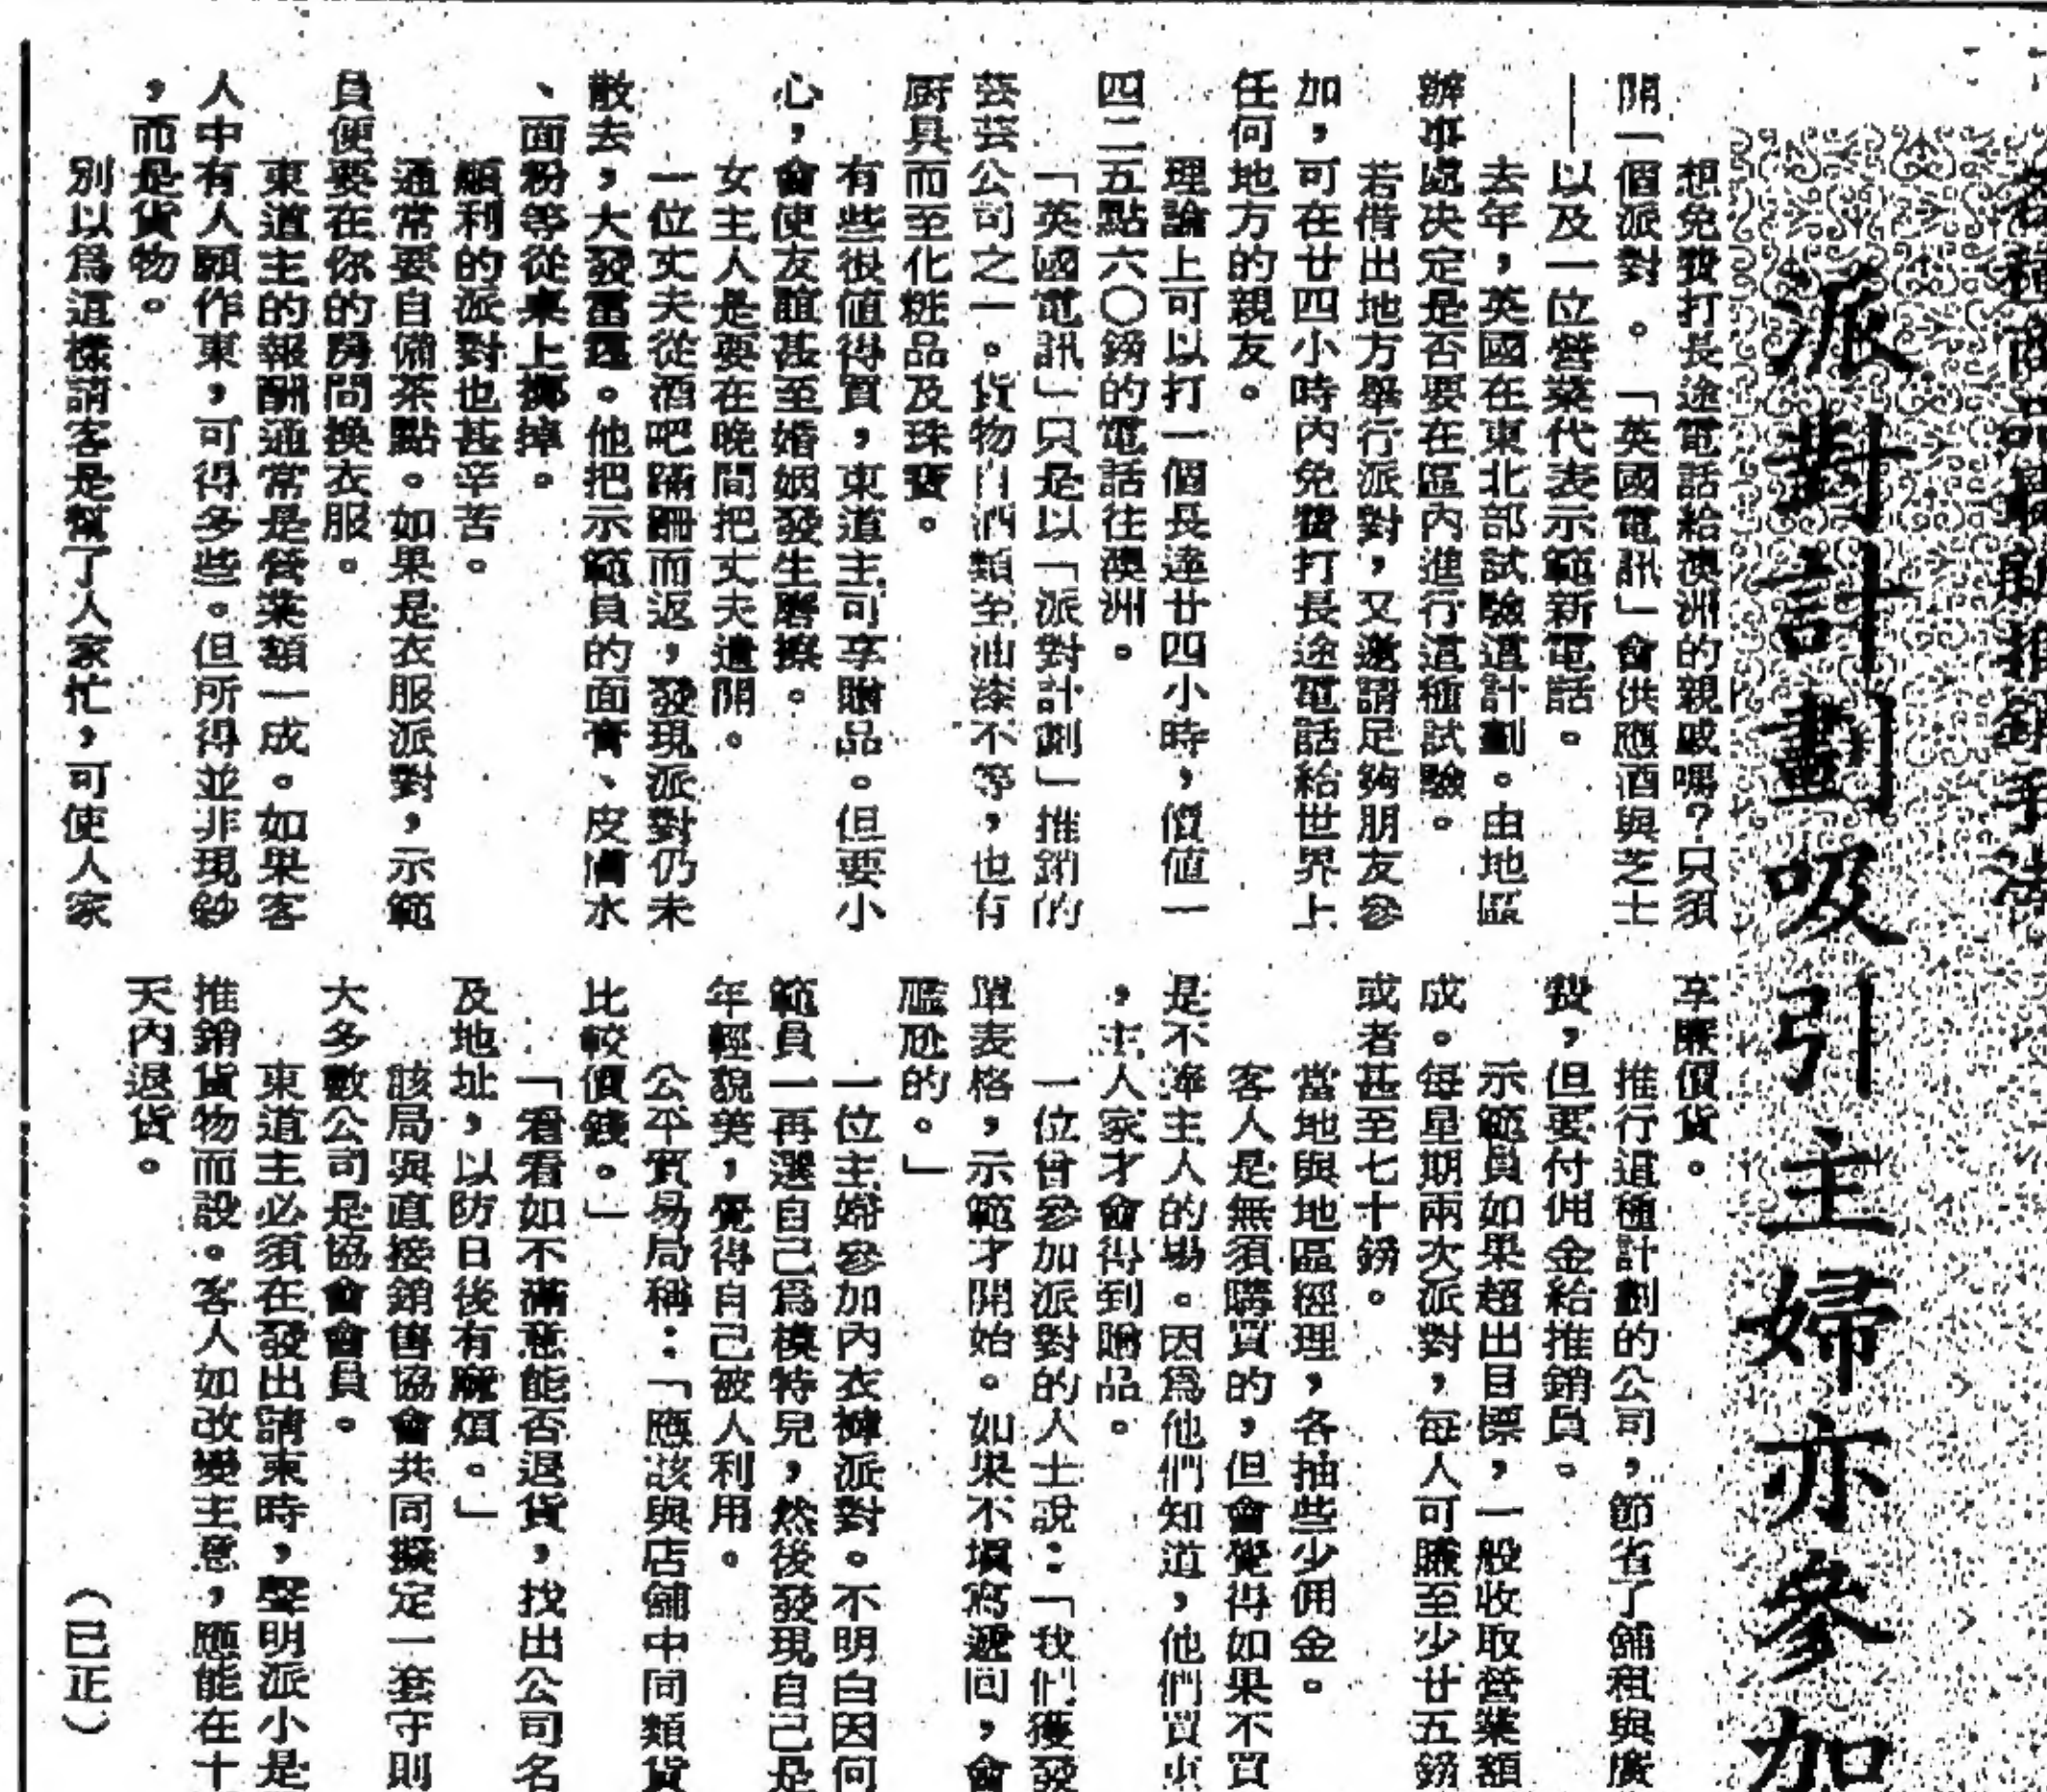 派對計劃吸引主婦亦參加
想免費打長途電話給澳洲的親戚嗎？只須
開一個派對。「英國電訊」會供應酒與芝士
——以及一位營業代表示範新電話。
去年，英國在東北部試驗這計劃。由地區
辦事處决定是否要在區內進行這種試驗。
若借出地方舉行派對，又邀請足夠朋友參
加，可在廿四小時內免費打長途電話給世界上
任何地方的親友。
理論上可以打一個長達廿四小時，價值一
四二五點六〇鎊的電話往澳洲。
「英國電訊」只是以「派對計劃」推銷的
芸芸公司之一。貨物自酒類至油漆不等，也有
廚具而至化粧品及珠寶。
有些很值得買，東道主可享贈品。但要小
心，會使友誼甚至婚姻發生磨擦。
女主人是要在晚間把丈夫遣開。
一位丈夫從酒吧蹣跚而返，發現派對仍未
散去，大發雷霆。他把示範員的面膏、皮膚水
、面粉等從桌上擲掉。
順利的派對也甚辛苦。
通常要自備茶點。如果是衣服派對，示範
員便要在你的房間換衣服。
東道主的報酬通常是營業額一成。如果客
人中有人願作東，可得多些。但所得並非現鈔
，而是貨物。
別以爲這樣請客是幫了人家忙，可使人家
享廉價貨。
推行這種計劃的公司，節省了舖租與廣
費，但要付佣金給推銷員。
示範員如果超出目標，一般收取營業額
成。每星期兩次派對，每人可賺至少廿五鎊
或者甚至七十鎊。
當地與地區經理，各抽些少佣金。
客人是無須購買的，但會覺得如果不買
是不捧主人的場。因爲他們知道，他們買東
，主人家才會得到贈品。
一位曾參加派對的人士說：「我們獲發
單表格，示範才開始。如果不填寫遞回，會
尷尬的。」
一位主婦參加內衣褲派對。不明白因何
範員一再選自己爲模特兒，然後發現自己是
年輕貌美，覺得自己被人利用。
公平貿易局稱：「應該與店舖中同類貨
比較價錢。」
「看看如不滿意能否退貨，找出公司名
及地址，以防日後有麻煩。」
該局與直接銷售協會共同擬定一套守則
大多數公司是協會會員。
東道主必須在發出請柬時，聲明派小是
推銷貨物而設。客人如改變主意，應能在十
天內退貨。
（己正）